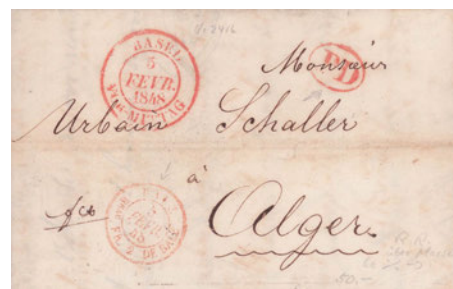 BASEL
5
FEVR.
1848
MITTAG
PD
Monsieur
Urbain Schaller
à
fco
Alger.
50.-